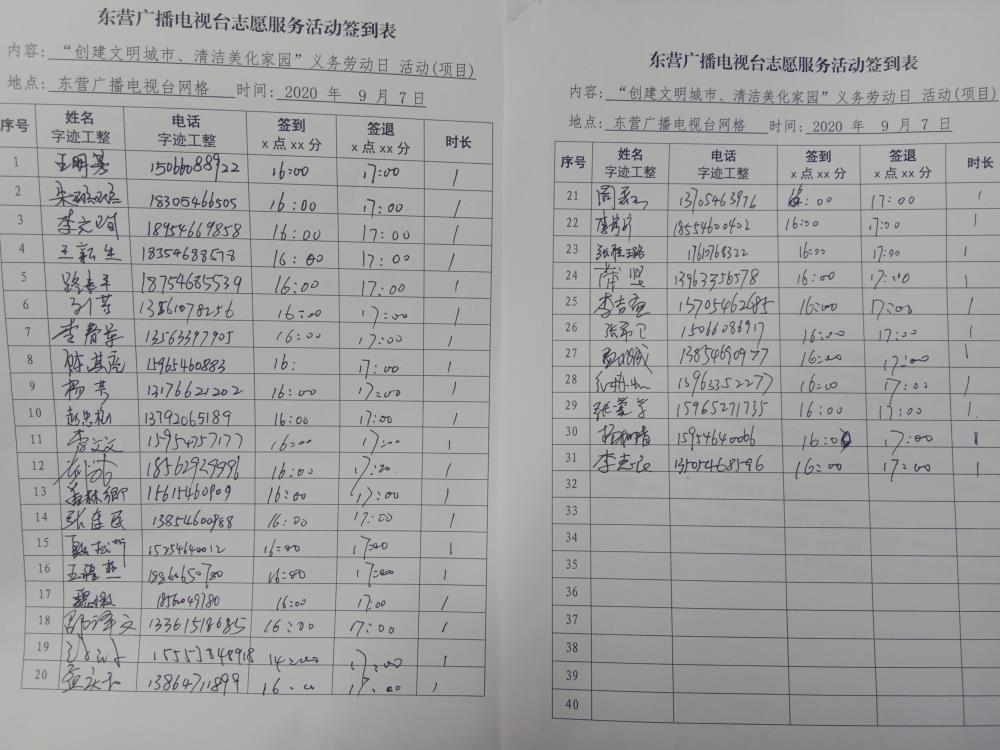 东营广播电视台志愿服务活动签到表
内容: “创建文明城市、清洁美化家园”义务劳动日 活动(项目)
地点: 东营广播电视台网格 时间: 2020 年 9 月 7 日
序号 姓名 字迹工整 电话 字迹工整 签到 x 点 xx 分 签退 x 点 xx 分 时长
1 15066088922 16:00 17:00 1
2 18305466505 16:00 17:00 1
3 李文娟 18954669858 16:00 17:00 1
4 王新生 18354688578 16:00 17:00 1
5 路春平 18754685539 16:00 17:00 1
6 13561078256 16:00 17:00 1
7 李春华 13563397905 16:00 17:00 1
8 陈其亮 15965460883 16: 17:00 1
9 杨芳 13176621202 16:00 17:00 1
10 赵忠松 13792065189 16:00 17:00 1
11 李文文 15954757177 16:00 17:00 1
12 18562929996 16:00 17:00 1
13 15615460909 16:00 17:00 1
14 张金民 13854600988 16:00 17:00 1
15 15254640012 16:00 17:00 1
16 16:00 17:00 1
17 16:00 17:00 1
18 邵泽文 13361518685 16:00 17:00 1
19 15553848918 17:00 1
20 13864711899 16:00 17:00 1
东营广播电视台志愿服务活动签到表
内容: “创建文明城市、清洁美化家园”义务劳动日 活动(项目)
地点: 东营广播电视台网格 时间: 2020 年 9 月 7 日
序号 姓名 字迹工整 电话 字迹工整 签到 x 点 xx 分 签退 x 点 xx 分 时长
21 13705463976 17:00 1
22 18554600402 16:00 17:00 1
23 1761768322 16:00 17:00 1
24 13963356578 16:00 17:00 1
25 13705462685 16:00 17:00 1
26 15066086917 16:00 17:00 1
27 13854690977 16:00 17:00 1
28 13963352277 16:00 17:00 1
29 15965271735 16:00 17:00 1
30 杨柳青 15954640066 16:00 17:00 1
31 李志民 13505468596 16:00 17:00 1
32
33
34
35
36
37
38
39
40